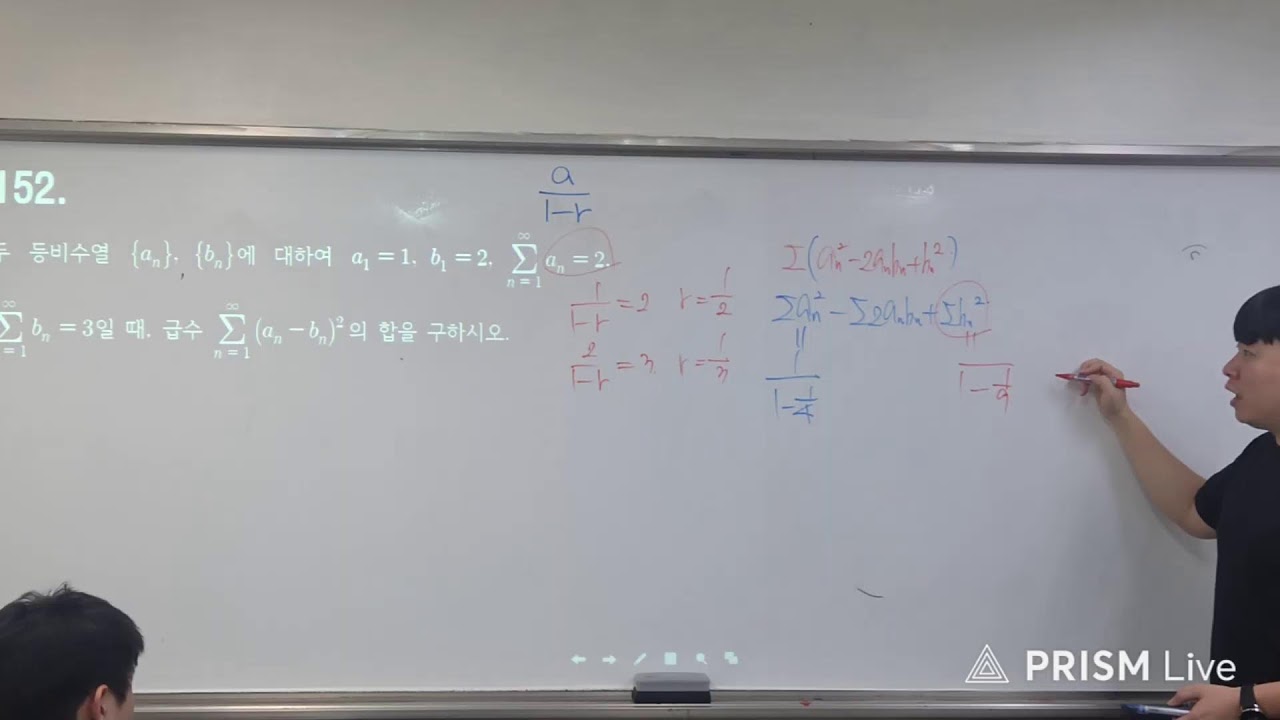 152.
두 등비수열 {aₙ}, {bₙ}에 대하여 a₁ = 1, b₁ = 2, ∑_{n=1}^{∞} aₙ = 2,
∑_{n=1}^{∞} bₙ = 3일 때, 급수 ∑_{n=1}^{∞} (aₙ − bₙ)²의 합을 구하시오.
a/(1−r)
1/(1−r) = 2 r = 1/2
2/(1−r) = 3 r = 1/3
Σ(aₙ² − 2aₙbₙ + bₙ²)
Σaₙ² − Σ2aₙbₙ + Σbₙ²
= 1/(1 − 1/4)
= /(1 − 1/9)
PRISM Live